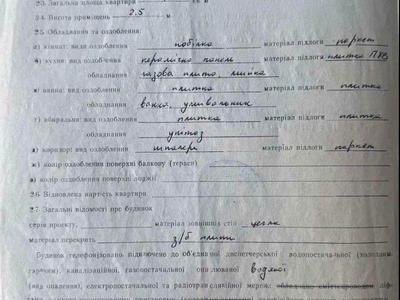 23. Загальна площа квартири
24. Висота приміщень 2.5 м
25. Обладнання та оздоблення:
а) кімнат: види оздоблення побілка матеріал підлоги паркет
б) кухня: вид оздоблення керамічна панель матеріал підлоги плитка ПХВ
обладнання газова плита, мийка
в) ванна: вид оздоблення плитка матеріал підлоги плитка
обладнання ванна, умивальник
г) вбиральня: вид оздоблення плитка матеріал підлоги плитка
обладнання унітаз
д) коридор: вид оздоблення шпалери матеріал підлоги паркет
ж) колір оздоблення поверхні балкону (тераси)
з) колір оздоблення поверхні лоджії
26. Відновлена вартість квартири
27. Загальні відомості про будинок
серія проекту, матеріал зовнішніх стін цегла
матеріал перекрить з/б плити
Будинок телефонізовано підключено до об'єднаної диспетчерської водопостачальної (холодним,
гарячим), каналізаційної, газопостачальної опалювової водяної
(вид опалення), електропостачальної та радіотрансляційної мереж,